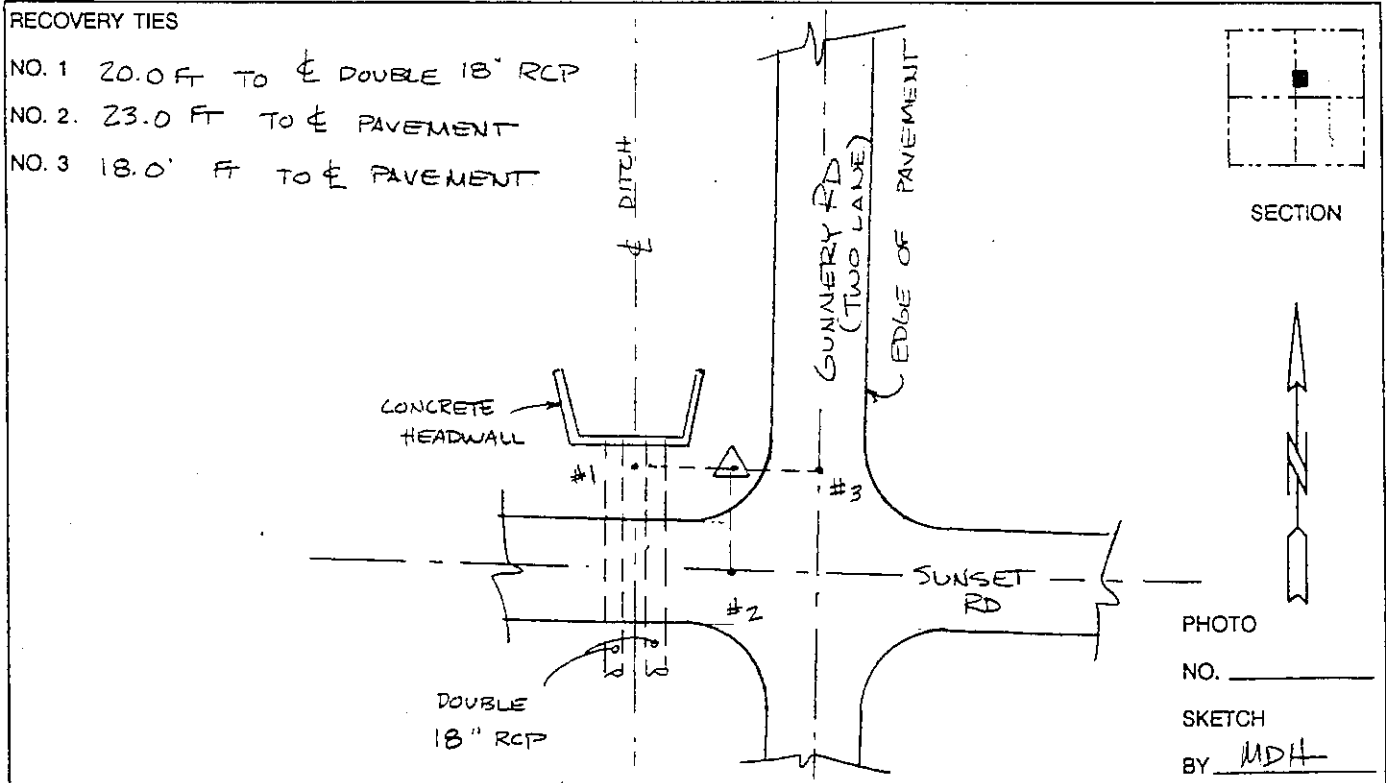 RECOVERY TIES
NO. 1 20.0 FT TO ℄ DOUBLE 18" RCP
NO. 2. 23.0 FT TO ℄ PAVEMENT
NO. 3 18.0' FT TO ℄ PAVEMENT
℄ DITCH
GUNNERY RD
(TWO LANE)
EDGE OF PAVEMENT
SECTION
CONCRETE
HEADWALL
#1
#3
N
#2
SUNSET
RD
DOUBLE
18" RCP
PHOTO
NO.
SKETCH
BY MDH